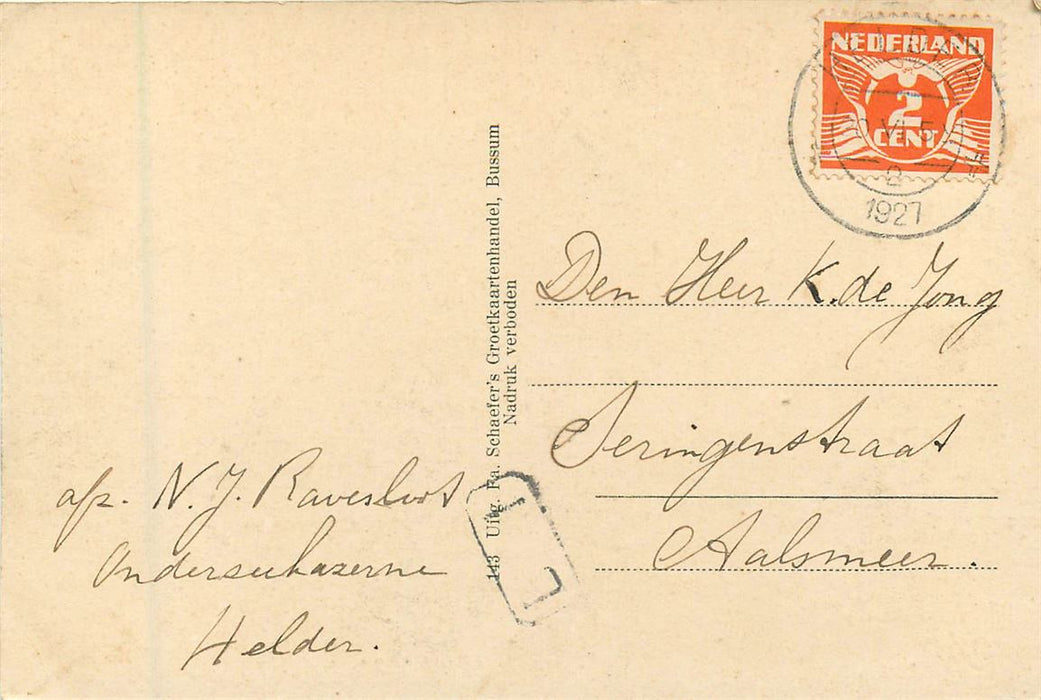 NEDERLAND
2
CENT
VI.5
1927
Den Heer K. de Jong
Seringenstraat
Aalsmeer.
143 Uitg. Fa. Schaefer's Groetkaartenhandel, Bussum
Nadruk verboden
afz. N. J. Ravesloot
Helder.